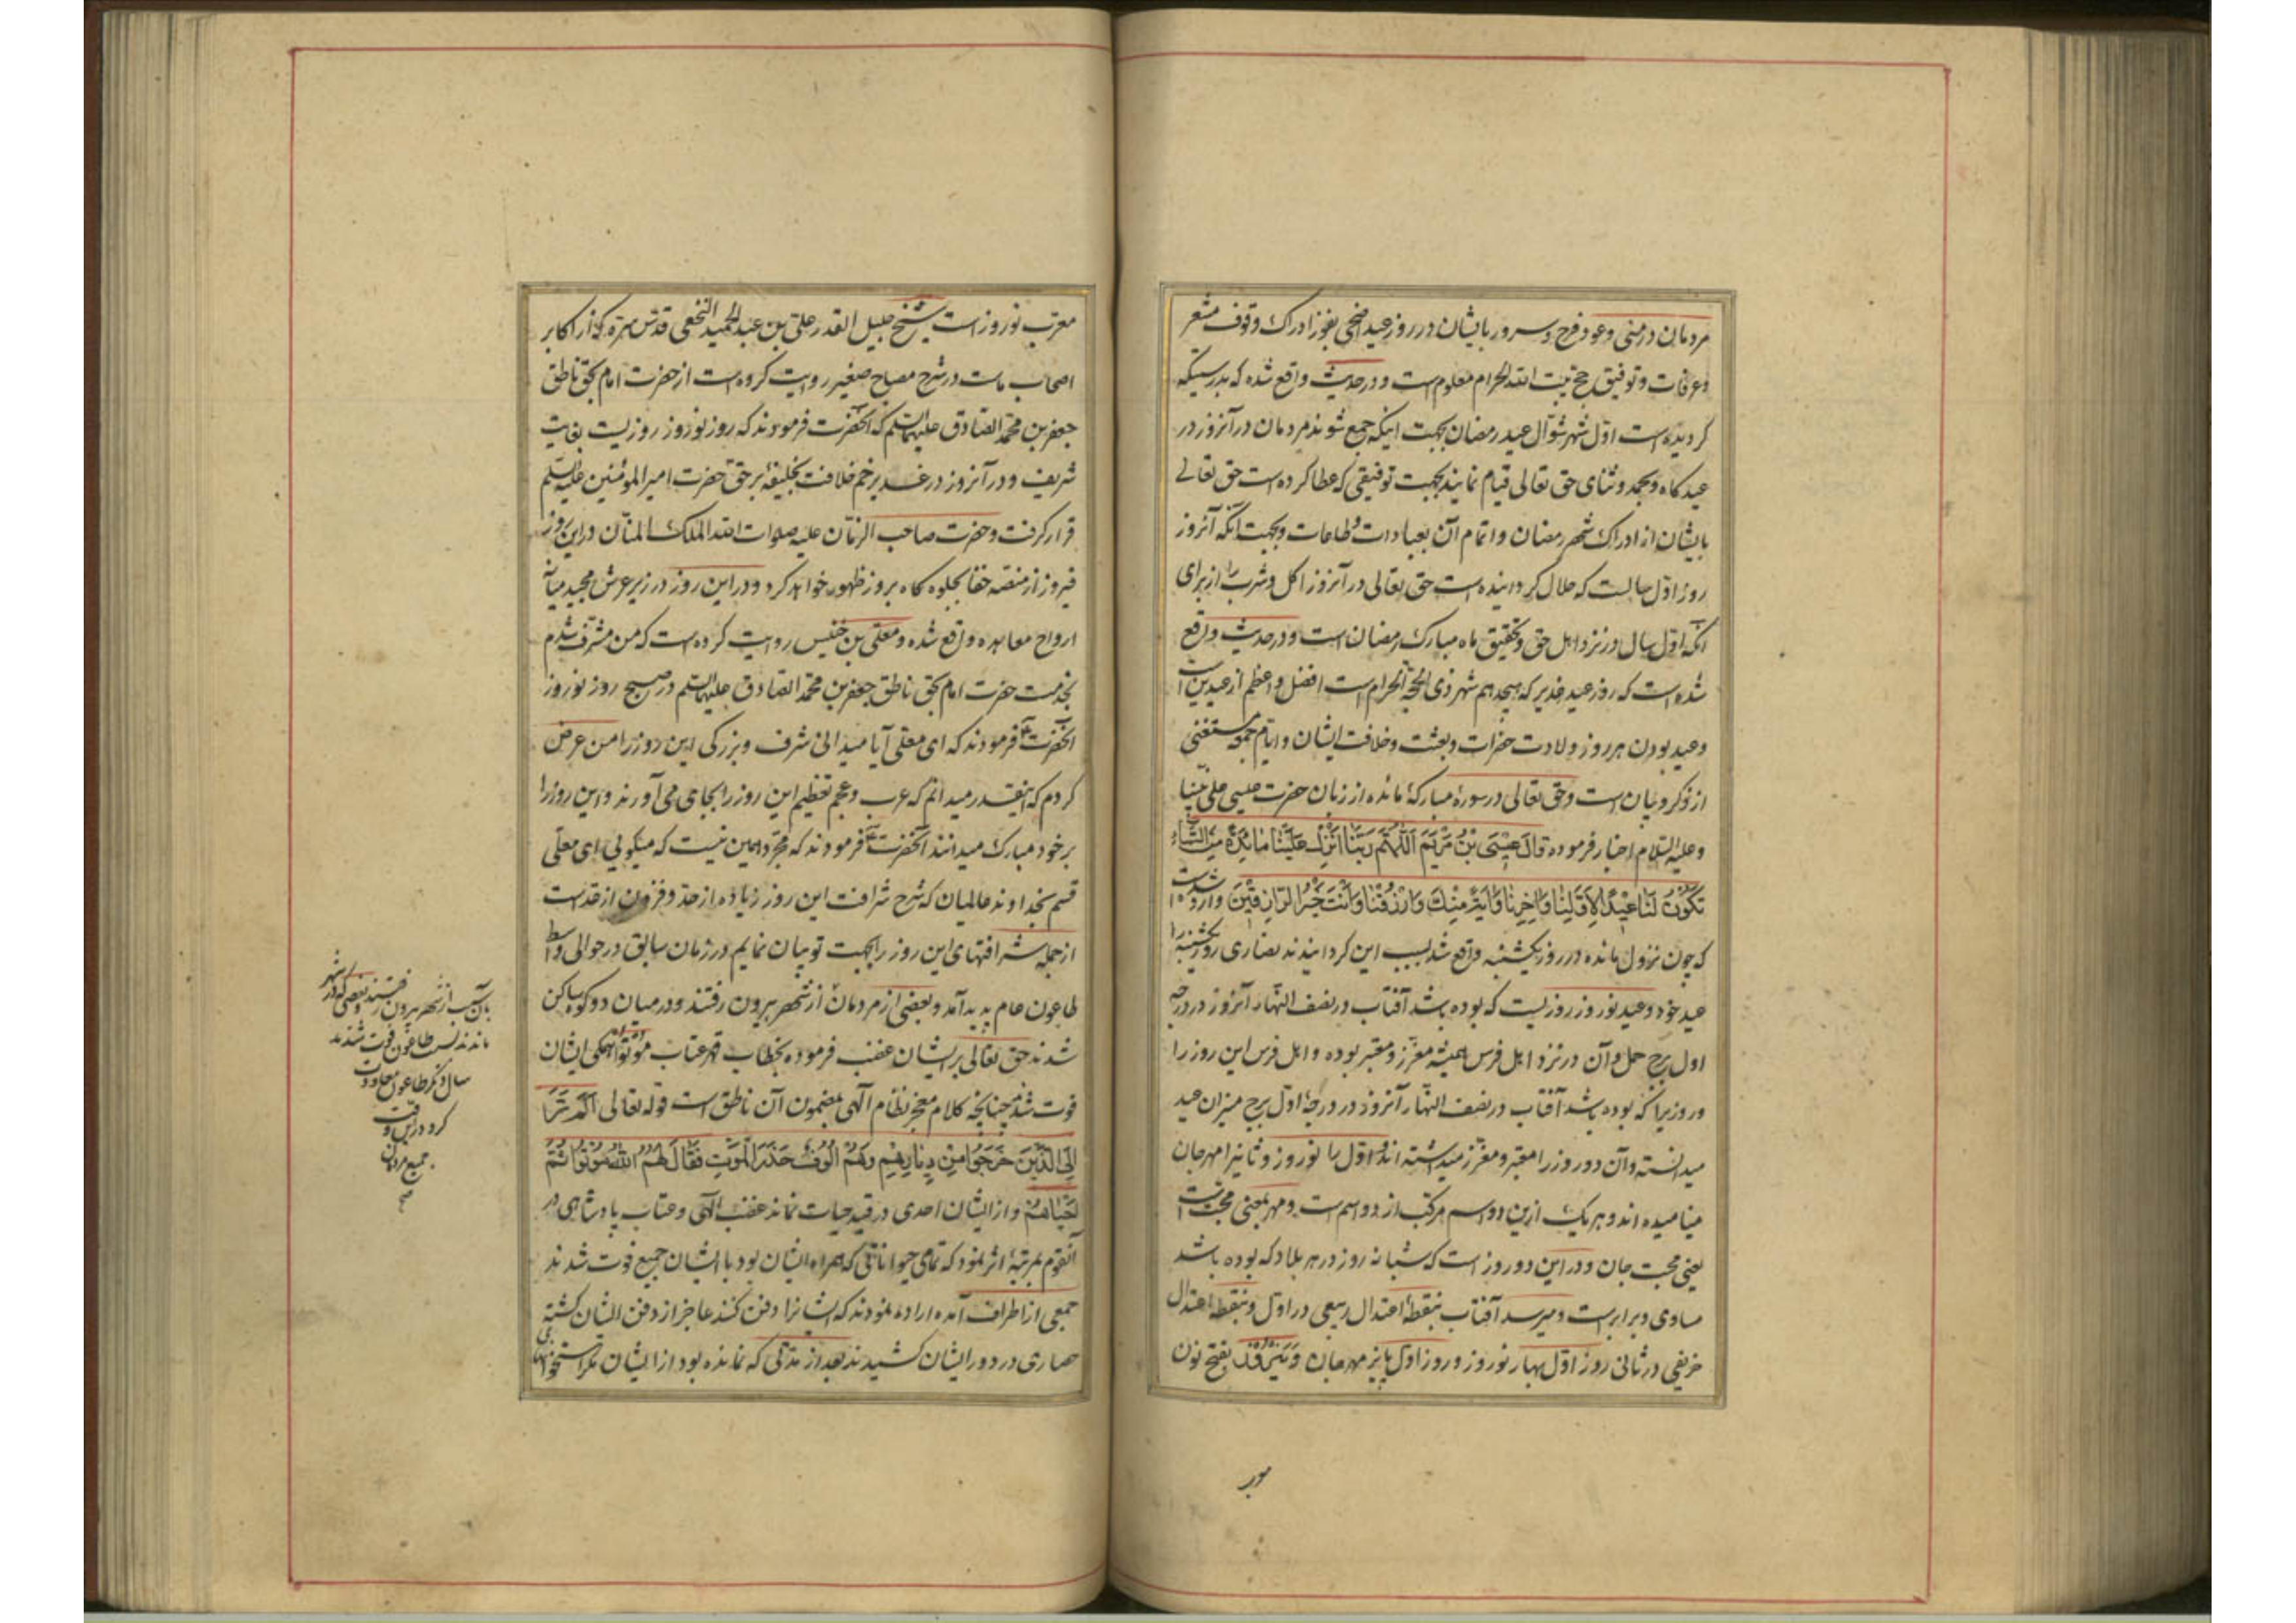 مردمان در منی و عود فرح و سرور بایشان در روز عید اضحی بفوز ادراک وقوف مشعر
و عرفات و توفیق حج بیت الله الحرام معلوم است و در حدیث واقع شده که بدرستیکه
کردیده است اوّل شهر شوّال عید رمضان بجهت اینکه جمع شوند مردمان در آنروز در
عیدکاه و بحمد و ثنای حق تعالی قیام نمایند بجهت توفیقی که عطا کرده است حق تعالی
بایشان از ادراک شهر رمضان و اتمام آن بعبادات و طاعات و بجهت آنکه آنروز
روز اوّل سالست که حلال کردانیده است حق تعالی در آنروز اکل و شرب را از برای
آنکه اوّل سال در نزد اهل حق و تحقیق ماه مبارک رمضان است و در حدیث واقع
شده است که روز عید غدیر که هیجدهم شهر ذی الحجة الحرام است افضل و اعظم از عیدین است
و عید بودن هر روز ولادت حضرات و بعثت و خلافت ایشان و ایام جمعه مستغنی
از ذکر و بیان است و حق تعالی در سورهٔ مبارکهٔ مائده از زبان حضرت عیسی علی نبینا
و علیه السلام اخبار فرموده قالَ عیسَی بْنُ مَرْیَمَ اَللّٰهُمَّ رَبَّنا اَنْزِلْ عَلَیْنا مائِدَةً مِنَ السَّماءِ
تَکُونُ لَنا عیداً لِاَوَّلِنا وَ اخِرِنا وَ ایَةً مِنْکَ وَ ارْزُقْنا وَ اَنْتَ خَیْرُ الرّازِقینَ وارد شده است
که چون نزول مائده در روز یکشنبه واقع شد بسبب این کردانیدند نصاری روز یکشنبه را
عید خود و عید نوروز روزیست که بوده باشد آفتاب در نصف النّهار آنروز در درجه
اول برج حمل و آن در نزد اهل فرس همیشه معزّز و معتبر بوده و اهل فرس این روز را
و روزیرا که بوده باشد آفتاب در نصف النهار آنروز در درجهٔ اول برج میزان عید
میدانسته و آن دو روز را معتبر و معزّز میداشته اند و اوّل را نوروز و ثانیرا مهرجان
مینامیده اند و هر یک ازین دو اسم مرکّب از دو اسم است و مهر بمعنی محبّت است
یعنی محبت جان و در این دو روز است که شبانه روز در هر بلاد که بوده باشد
مساوی و برابر است و میرسد آفتاب بنقطهٔ اعتدال ربیعی در اوّل و بنقطهٔ اعتدال
خریفی در ثانی روز اوّل بهار نوروز و روز اوّل پاییز مهرجان وَ نَیْرُوْز بفتح نون
معرّب نوروز است شیخ جلیل القدر علی بن عبدالحمید النخعی قدس سره که از اکابر
اصحاب ماست در شرح مصباح صغیر روایت کرده است از حضرت امام بحق ناطق
جعفر بن محمد الصادق علیهما السلم که آنحضرت فرمودند که روز نوروز روزیست بغایت
شریف و در آنروز در غدیر خم خلافت بخلیفهٔ بر حق حضرت امیر المؤمنین علیه السلم
قرار کرفت و حضرت صاحب الزمان علیه صلوات الله الملک المنّان در این روز
فیروز از منصه خفا بجلوه کاه بروز ظهور خواهد کرد و در این روز در زیر عرش مجید میان
ارواح معاهده واقع شده و معلّی بن خنیس روایت کرده است که من مشرّف شدم
بخدمت حضرت امام بحق ناطق جعفر بن محمد الصادق علیهما السلم در صبح روز نوروز
آنحضرت فرمودند که ای معلّی آیا میدانی شرف و بزرکی این روز را من عرض
کردم که اینقدر میدانم که عرب و عجم تعظیم این روز را بجای می آورند و این روز را
بر خود مبارک میدانند آنحضرت فرمودند که مجرّد همین نیست که میکویی ای معلّی
قسم بخداوند عالمیان که شرح شرافت این روز زیاده از حدّ و فزون از عدّ است
از جمله شرافتهای این روز را بجهت تو بیان نمایم در زمان سابق در حوالی واسط
طاعون عام پدید آمد و بعضی از مردمان از شهر بیرون رفتند و در میان دو کوه ساکن
شدند حق تعالی بر ایشان غضب فرموده بخطاب قهر عتاب مُوْتُوْا همکی ایشان
فوت شدند چنانچه کلام معجز نظام آلهی بمضمون آن ناطق است قوله تعالی اَلَمْ تَرَ
اِلَی الَّذینَ خَرَجُوا مِنْ دِیارِهِمْ وَ هُمْ اُلُوفٌ حَذَرَ الْمَوْتِ فَقالَ لَهُمُ اللهُ مُوتُوا ثُمَّ
اَحْیاهُمْ و از ایشان احدی در قید حیات نماند غضب آلهی و عتاب پادشاهی در
آنقوم بمرتبهٔ اثر نمود که تمامی حیواناتی که همراه ایشان بود با ایشان جمیع فوت شدند
جمعی از اطراف آمده اراده نمودند که ایشانرا دفن کنند عاجز از دفن ایشان کشته
حصاری در دور ایشان کشیدند بعد از مدّتی که نمانده بود از ایشان مکر استخوانهای
بآن سبب از شهر بیرون رفتند بعضی که در شهر
ماندند بسبب طاعون فوت شدند
سال دیکر طاعون معاودت
کرد در این وقت
جمیع مردمان
صح